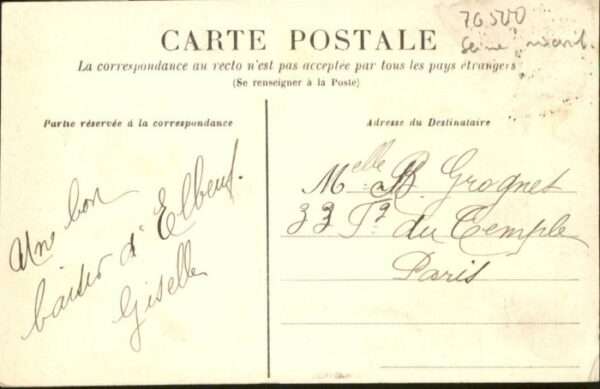 76500
Seine marit.
CARTE POSTALE
La correspondance au recto n'est pas acceptée par tous les pays étrangers
(Se renseigner à la Poste)
Partie réservée à la correspondance
Une bon
baiser d'Elbeuf.
Giselle
Adresse du Destinataire
Melle B. Grognet
33 Fg du Temple
Paris